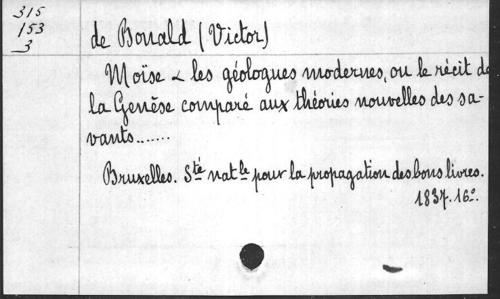 315
153
3
de Bonald (Victor)
Moïse & les géologues modernes, ou le récit de
la Genèse comparé aux théories nouvelles des sa-
vants.......
Bruxelles. Sté natle pour la propagation des bons livres.
1837. 16º.